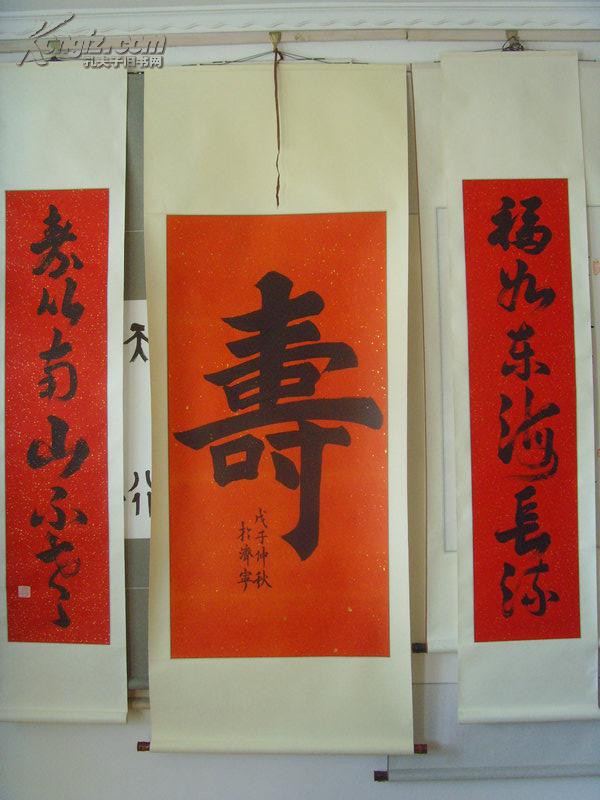 Kongfz.com
孔夫子旧书网
福如东海長流
壽
戊子仲秋
於濟寧
寿比南山不老